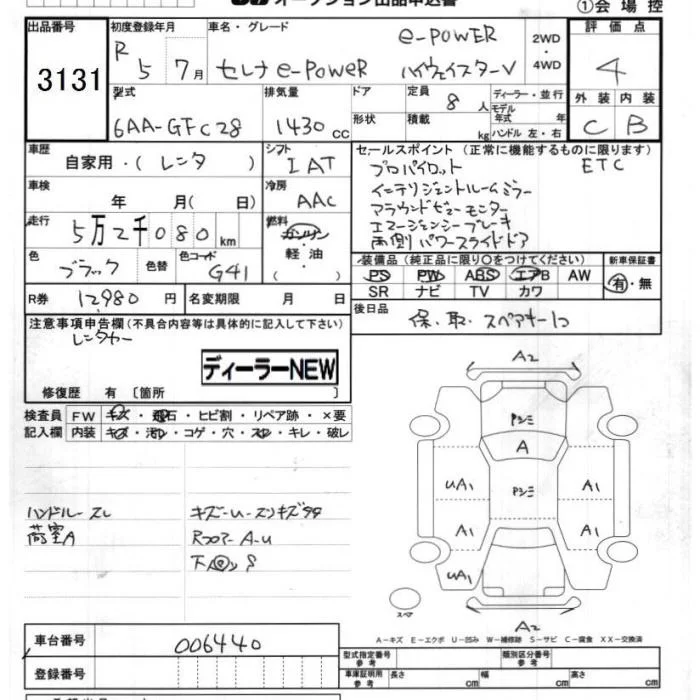 オークション出品申込書
①会場控
出品番号
3131
初度登録年月
R 5 7月
車名・グレード
e-POWER
セレナ e-POWER ハイウェイスターV
2WD
・
4WD
評価点
4
外装 内装
C B
型式
6AA-GFC28
排気量
1430 cc
ドア
形状
定員 8 人
積載 kg
ディーラー・並行
モデル
年式 年
ハンドル 左・右
車歴
自家用・(レンタ )
シフト
IAT
セールスポイント (正常に機能するものに限ります)
プロパイロット ETC
インテリジェントルームミラー
アラウンドビューモニター
エマージェンシーブレーキ
両側パワースライドドア
車検
年 月( 日)
冷房
AAC
走行
5万2千080 km
燃料
ガソリン
・
軽油
( )
色
ブラック
色替
色コード
G41
装備品 (純正品に限り○をつけてください)
PS PW ABS エアB AW
SR ナビ TV カワ
新車保証書
有・無
R券 12980 円
名変期限 月 日
後日品
保、取、スペアキー1コ
注意事項申告欄(不具合内容等は具体的に記入して下さい)
レンタカー
ディーラーNEW
修復歴 有 〔箇所 〕
検査員 FW キズ・飛石・ヒビ割・リペア跡・×要
記入欄 内装 キズ・汚れ・コゲ・穴・スレ・キレ・破レ
ハンドルースレ
荷室A
A2
A
UA1
A1
A1
A1
UA1
A1
スペア
A2
A-キズ E-エクボ U-凹み W-補修跡 S-サビ C-腐食 XX-交換済
車台番号
006440
登録番号
型式指定番号
参考
類別区分番号
参考
車庫証明用
参考
長さ cm
幅 cm
高さ cm